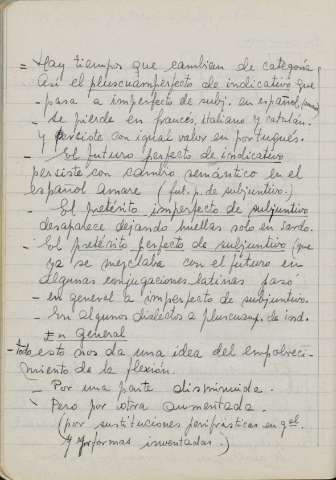 = Hay tiempos que cambian de categoría
Así el pluscuamperfecto de indicativo que
- pasa a imperfecto de subj. en español,
- se pierde en francés, italiano y catalán.
y persiste con igual valor en portugués.
- El futuro perfecto de indicativo
persiste con cambio semántico en el
español amare (fut. p. de subjuntivo.)
- El pretérito imperfecto de subjuntivo
desaparece dejando huellas solo en sardo.
- El pretérito perfecto de subjuntivo (que
ya se mezclaba con el futuro en
algunas conjugaciones latinas pasó
- en general a imperfecto de subjuntivo.
- En algunos dialectos a pluscuamp. de ind.
En general
- Todo esto nos da una idea del empobreci-
miento de la flexión.
- Por una parte disminuida.
\ Pero por otra aumentada.
(por sustituciones perifrásticas en gral.
y formas inventadas.)